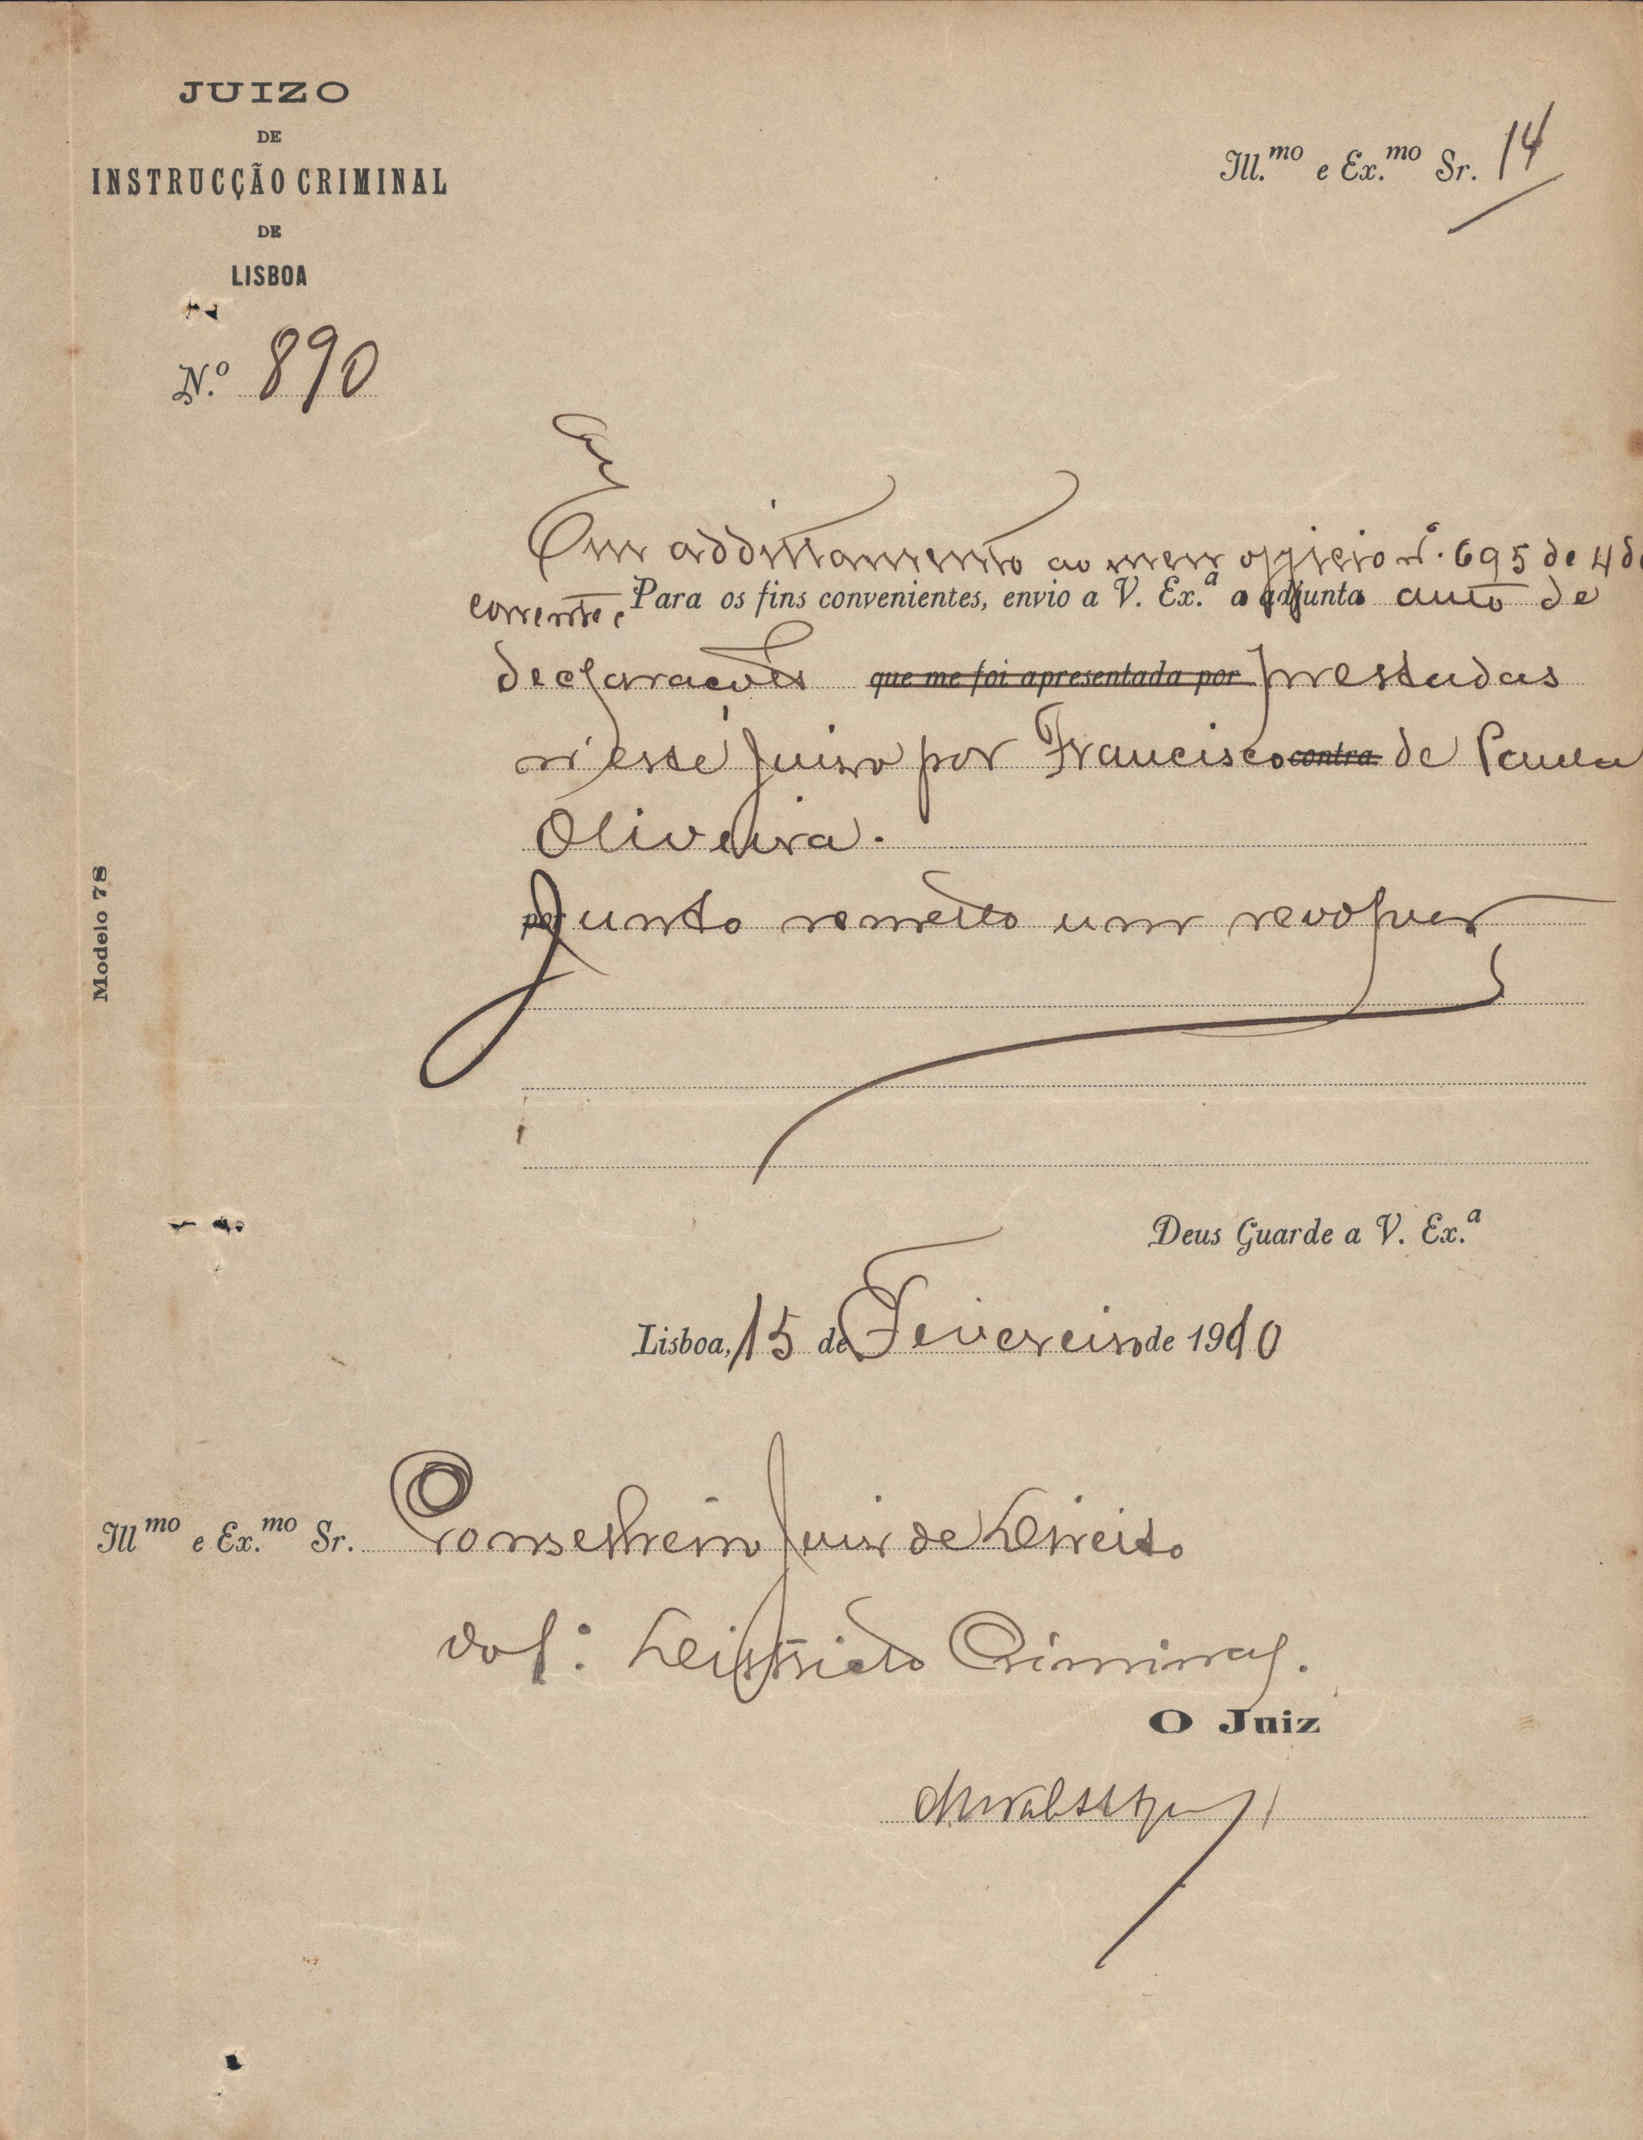 JUIZO
DE
INSTRUCÇÃO CRIMINAL
DE
LISBOA
N.º 890
Ill.mo e Ex.mo Sr. 14
Em additamento ao meu officio nº. 695 de 4 do
corrente, Para os fins convenientes, envio a V. Ex.ª o adjunto auto de
declarações que me foi apresentada por prestadas
n'esse Juizo por Francisco contra de Paula
Oliveira.
por Junto remetto um revolver
Modelo 78
Deus Guarde a V. Ex.ª
Lisboa, 15 de Fevereiro de 1910
Ill mo e Ex.mo Sr. Conselheiro Juiz de Direito
do 1º: Districto Criminal.
O Juiz